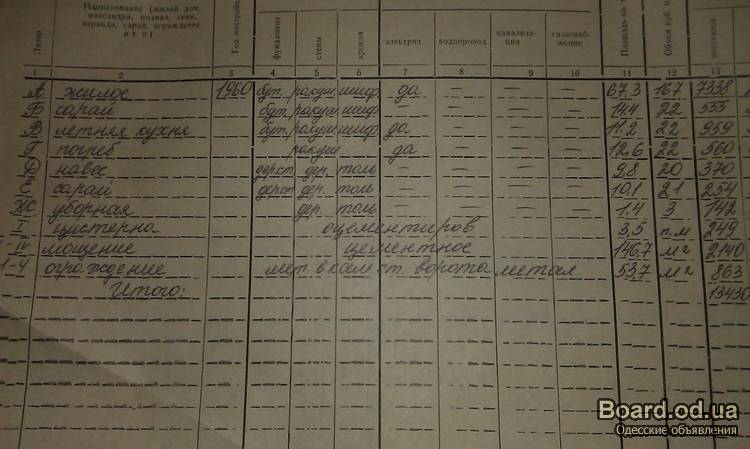 Литер
Наименование (жилой дом, мансандра, подвал, сени, веранда, сарай, ограждение и т. п.)
Год постройки
фундамент
стены
кровля
электрич
водопровод
канализация
газоснабжение
Площадь кв.
Объем куб. м.
1 2 3 4 5 6 7 8 9 10 11 12 13
А жилое 1960 бут. ракуш. шиф. да — — — 67.3 167 7338
Б сарай бут. ракуш. шиф. — — — — 14.4 22 555
В летняя кухня бут. ракуш. шиф. да — — — 11.2 22 959
Г погреб ракуш да — — — 12,6 22 560
Д навес дерст. дер. толь — — — — 9,8 20 370
Е сарай дерст дер. толь — — — — 10,1 21 254
Ж уборная дер. толь — — — — 1.4 3 142
I цистерна оцементиров 3,5 п.м 249
IV мощение цементное 146,7 м2 2140
1-4 ограждение мет в кам.ст. ворота метал 53,7 м2 863
Итого: 13430
Board.od.ua
Одесские объявления